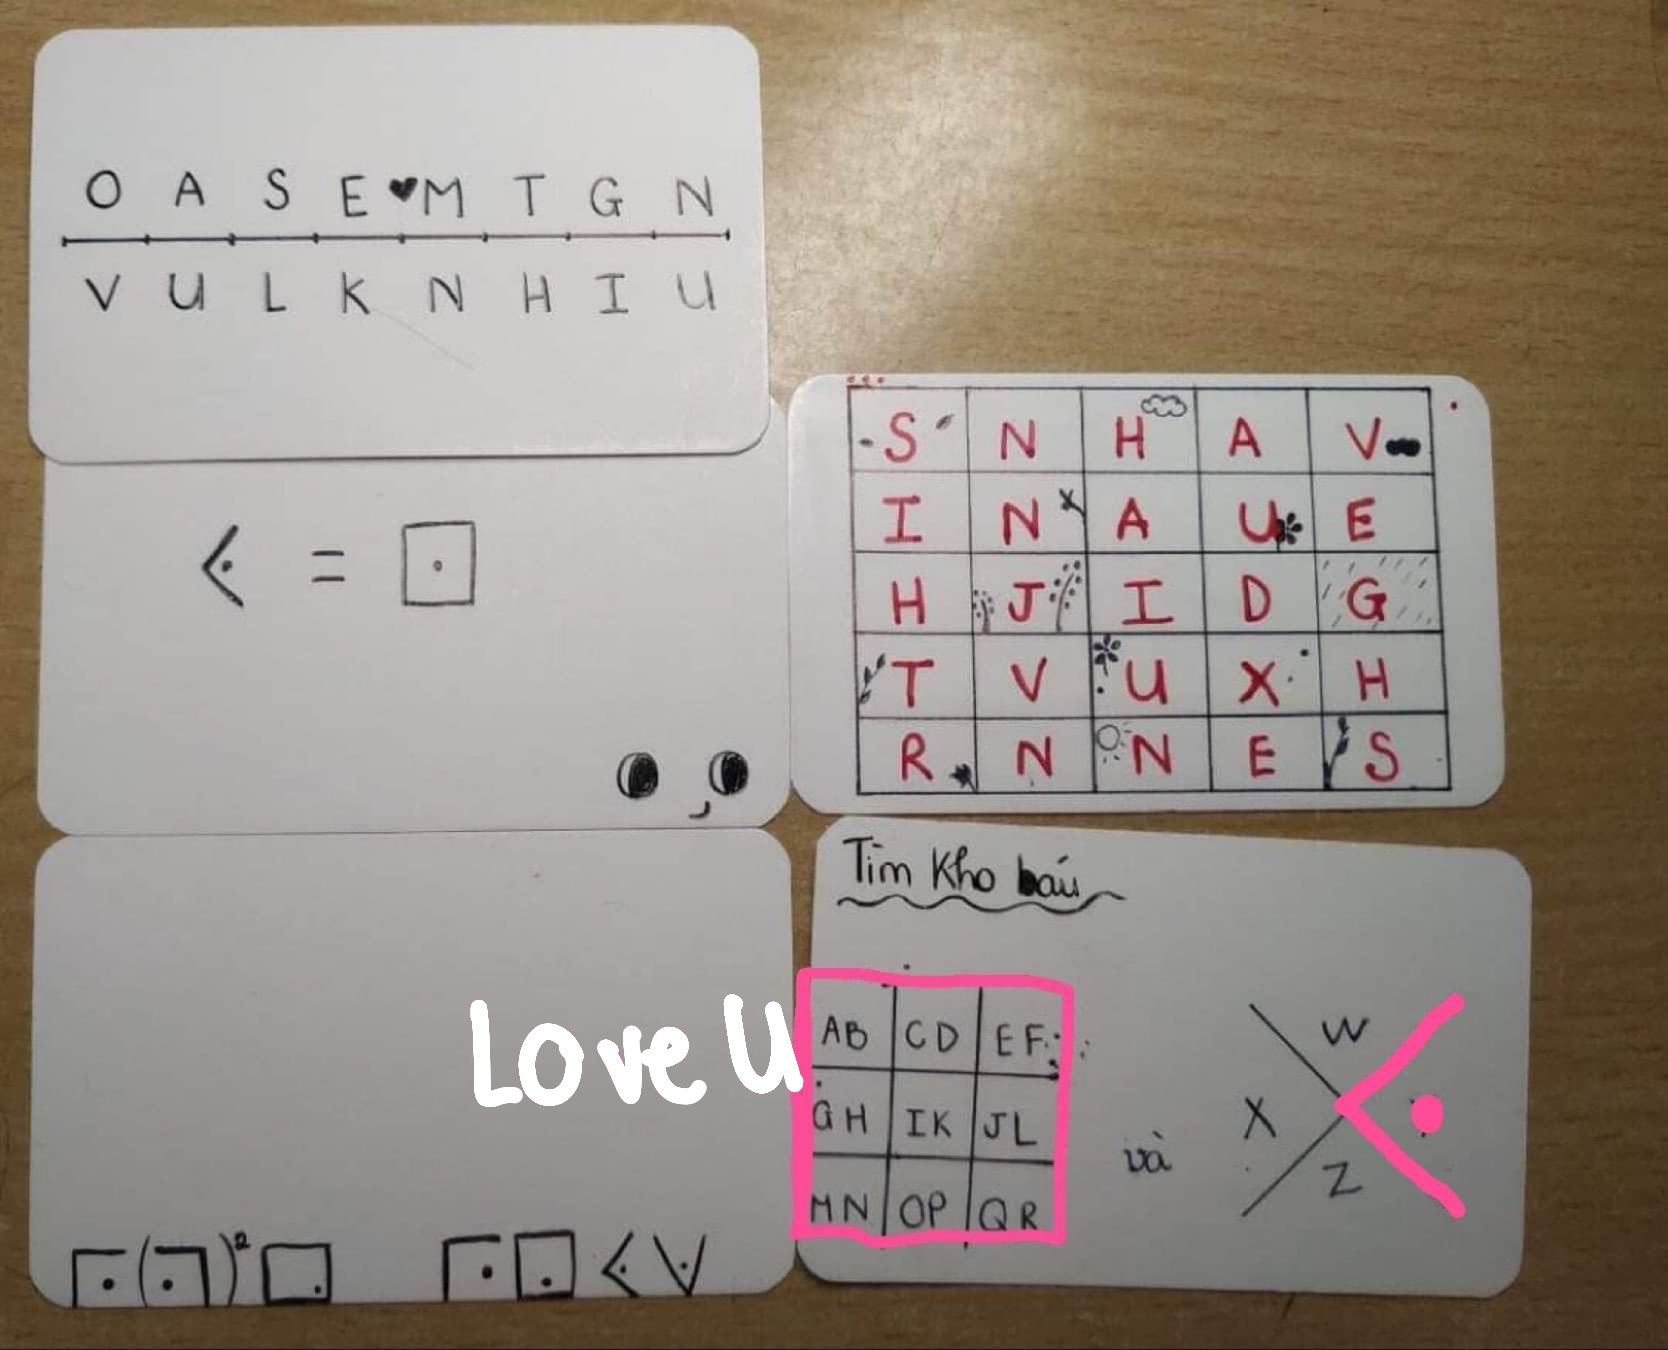 O A S E ♥ M T G N
V U L K N H I U
=
S N H A V
I N A U E
H J I D G
T V U X H
R N N E S
Tìm kho báu
AB CD EF
GH IK JL
MN OP QR
và
W
X
Z
Love U
( )²